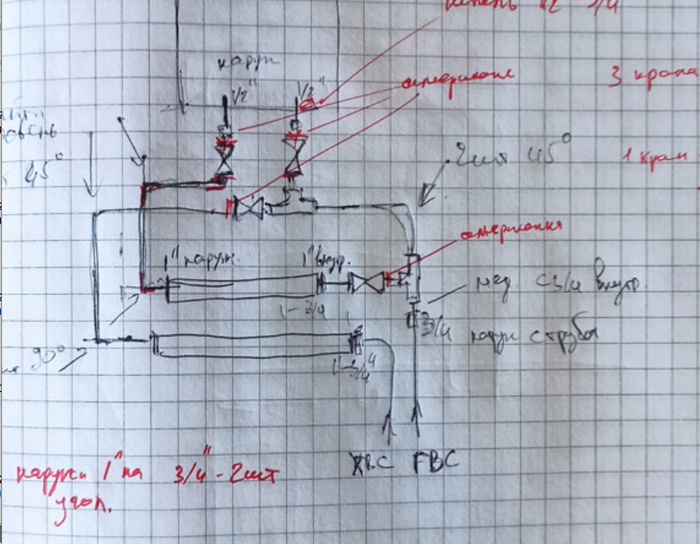 1/2 - 3/4
наруж
1/2"
1/2"
американс
3 крана
45°
2шт 45°
1 кран
американка
1" наруж.
1" внутр.
1 - 3/4
мед. с 3/4 внутр.
3/4 наруж с трубой
90°
1" - 3/4"
ХВС ГВС
наружн 1" на 3/4" - 2шт
угол.